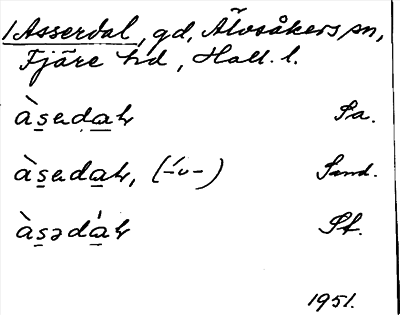 1 Asserdal, gd, Älvsåkers sn,
Fjäre hd, Hall. l.
àsedaḷ Sa.
àsedaḷ, (-́ ᴗ -) Sand.
àsədáḷ St.
1951.